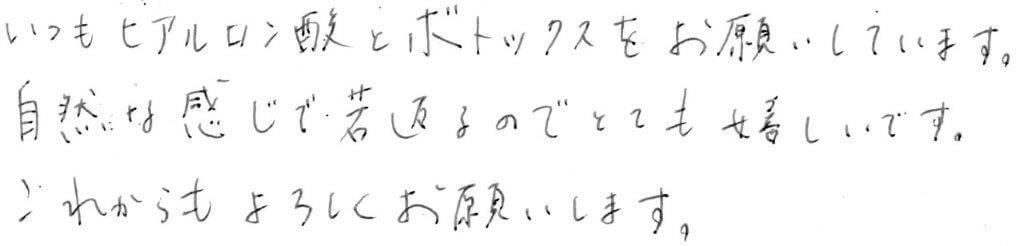 いつもヒアルロン酸とボトックスをお願いしています。
自然な感じで若返るのでとても嬉しいです。
これからもよろしくお願いします。